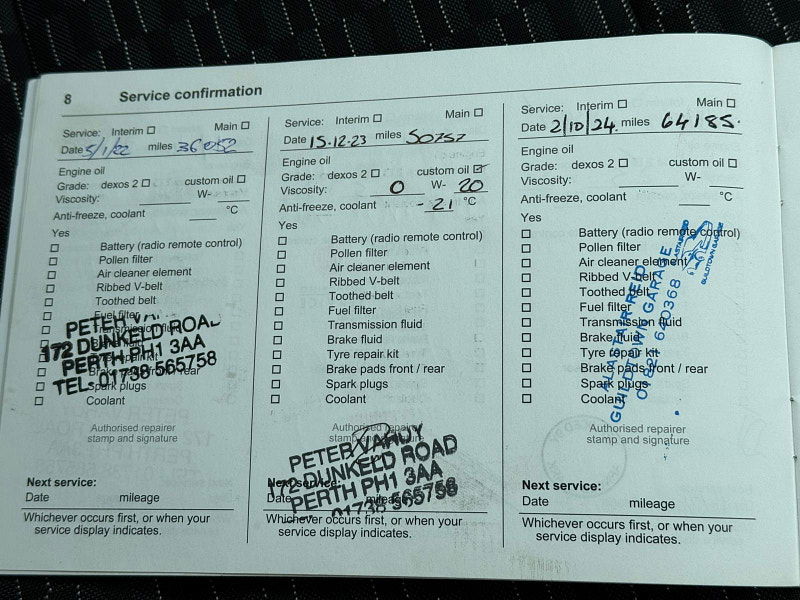 8 Service confirmation
Service: Interim Main
Date 5/1/22 miles 36052
Engine oil
Grade: dexos 2 custom oil
Viscosity: W-
Anti-freeze, coolant °C
Yes
Battery (radio remote control)
Pollen filter
Air cleaner element
Ribbed V-belt
Toothed belt
Fuel filter
Transmission fluid
Brake fluid
Tyre repair kit
Brake pads front / rear
Spark plugs
Coolant
PETER
172 DUNKELD ROAD
PERTH PH1 3AA
TEL: 01738 565758
Authorised repairer
stamp and signature
Next service:
Date mileage
Whichever occurs first, or when your
service display indicates.
Service: Interim Main
Date 15.12.23 miles 50757
Engine oil
Grade: dexos 2 custom oil
Viscosity: 0 W- 20
Anti-freeze, coolant -21 °C
Yes
Battery (radio remote control)
Pollen filter
Air cleaner element
Ribbed V-belt
Toothed belt
Fuel filter
Transmission fluid
Brake fluid
Tyre repair kit
Brake pads front / rear
Spark plugs
Coolant
Authorised repairer
stamp and signature
PETER VARDY
172 DUNKELD ROAD
PERTH PH1 3AA
01738 565758
Next service:
Date mileage
Whichever occurs first, or when your
service display indicates.
Service: Interim Main
Date 2/10/24. miles 64185.
Engine oil
Grade: dexos 2 custom oil
Viscosity: W-
Anti-freeze, coolant °C
Yes
Battery (radio remote control)
Pollen filter
Air cleaner element
Ribbed V-belt
Toothed belt
Fuel filter
Transmission fluid
Brake fluid
Tyre repair kit
Brake pads front / rear
Spark plugs
Coolant
ALASTAIR REID
GUILDTOWN GARAGE
01821 640368
ALASTAIR REID
GUILDTOWN GARAGE
Authorised repairer
stamp and signature
Next service:
Date mileage
Whichever occurs first, or when your
service display indicates.